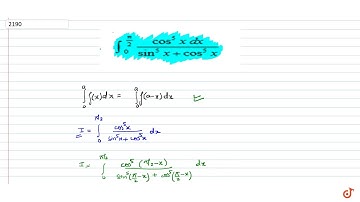 2190
∫₀^{π/2} cos⁵ x dx / sin⁵ x + cos⁵ x
∫₀^a f(x) dx = ∫₀^a f(a-x) dx
I = ∫₀^{π/2} cos⁵x / sin⁵x + cos⁵x dx
I = ∫₀^{π/2} cos⁵ (π/2 - x) / sin⁵(π/2 - x) + cos⁵(π/2 - x) dx